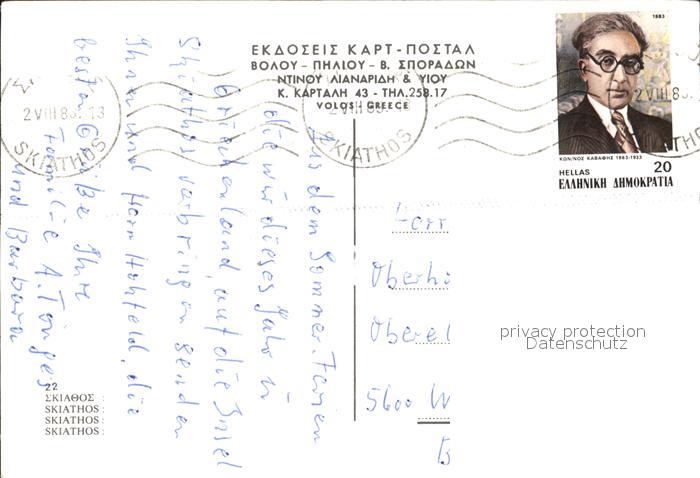 ΕΚΔΟΣΕΙΣ ΚΑΡΤ-ΠΟΣΤΑΛ
ΒΟΛΟΥ - ΠΗΛΙΟΥ - Β. ΣΠΟΡΑΔΩΝ
ΝΤΙΝΟΥ ΛΙΑΝΑΡΙΔΗ & ΥΙΟΥ
Κ. ΚΑΡΤΑΛΗ 43 - ΤΗΛ. 258.17
VOLOS - GREECE
1983
ΚΩΝ/ΝΟΣ ΚΑΒΑΦΗΣ 1863-1933
HELLAS 20
ΕΛΛΗΝΙΚΗ ΔΗΜΟΚΡΑΤΙΑ
2 VIII 83. 13
SKIATHOS
SKIATHOS
Aus dem Sommer-Ferien
die wir dieses Jahr in
Griechenland, auf die Insel
Skiathos verbringen senden
Ihnen und Herrn Hohfeld, die
besten Grüße Ihre
Familie A. Tönges
und Barbara
Herr
Oberh
Oberel
5600 W
privacy protection
Datenschutz
22
ΣΚΙΑΘΟΣ :
SKIATHOS :
SKIATHOS :
SKIATHOS :